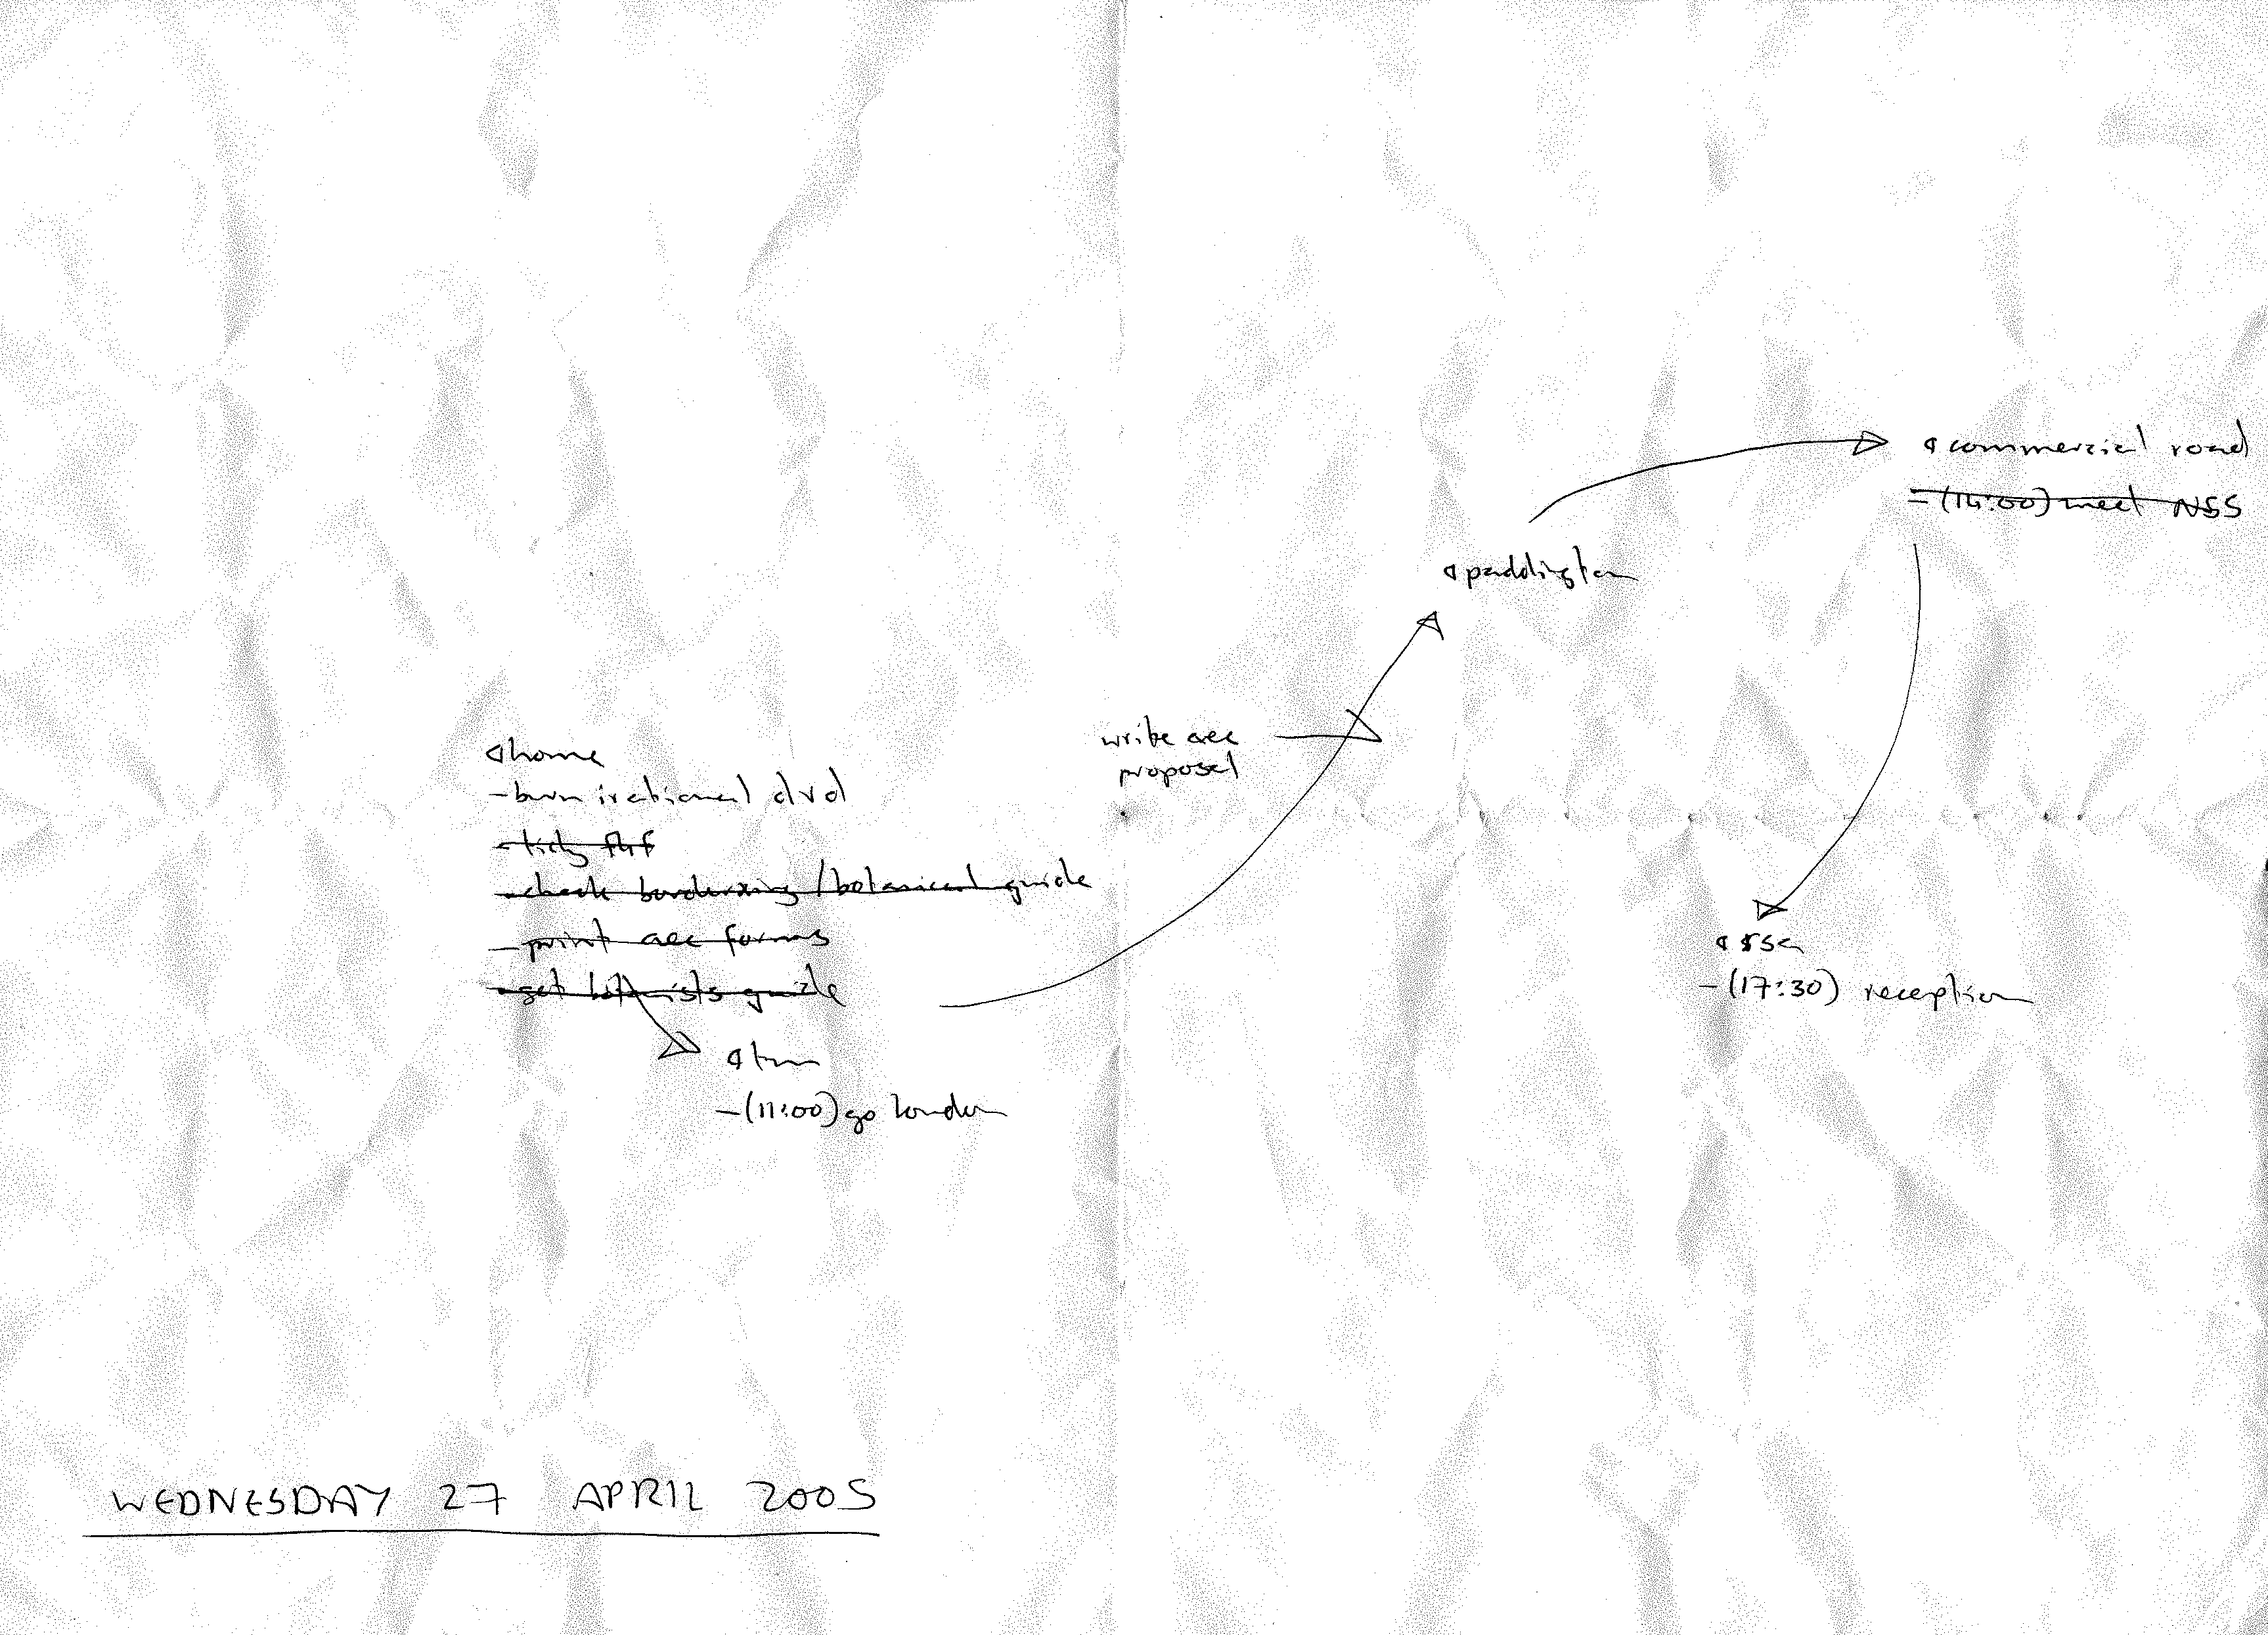 commercial road
-(14:00) meet NSS
paddington
write aec
proposal
home
-burn irational dvd
-tidy
-check borderxing/botanical guide
-print aec forms
-get botanists guide
-(11:00) go london
rsa
-(17:30) reception
WEDNESDAY 27 APRIL 2005